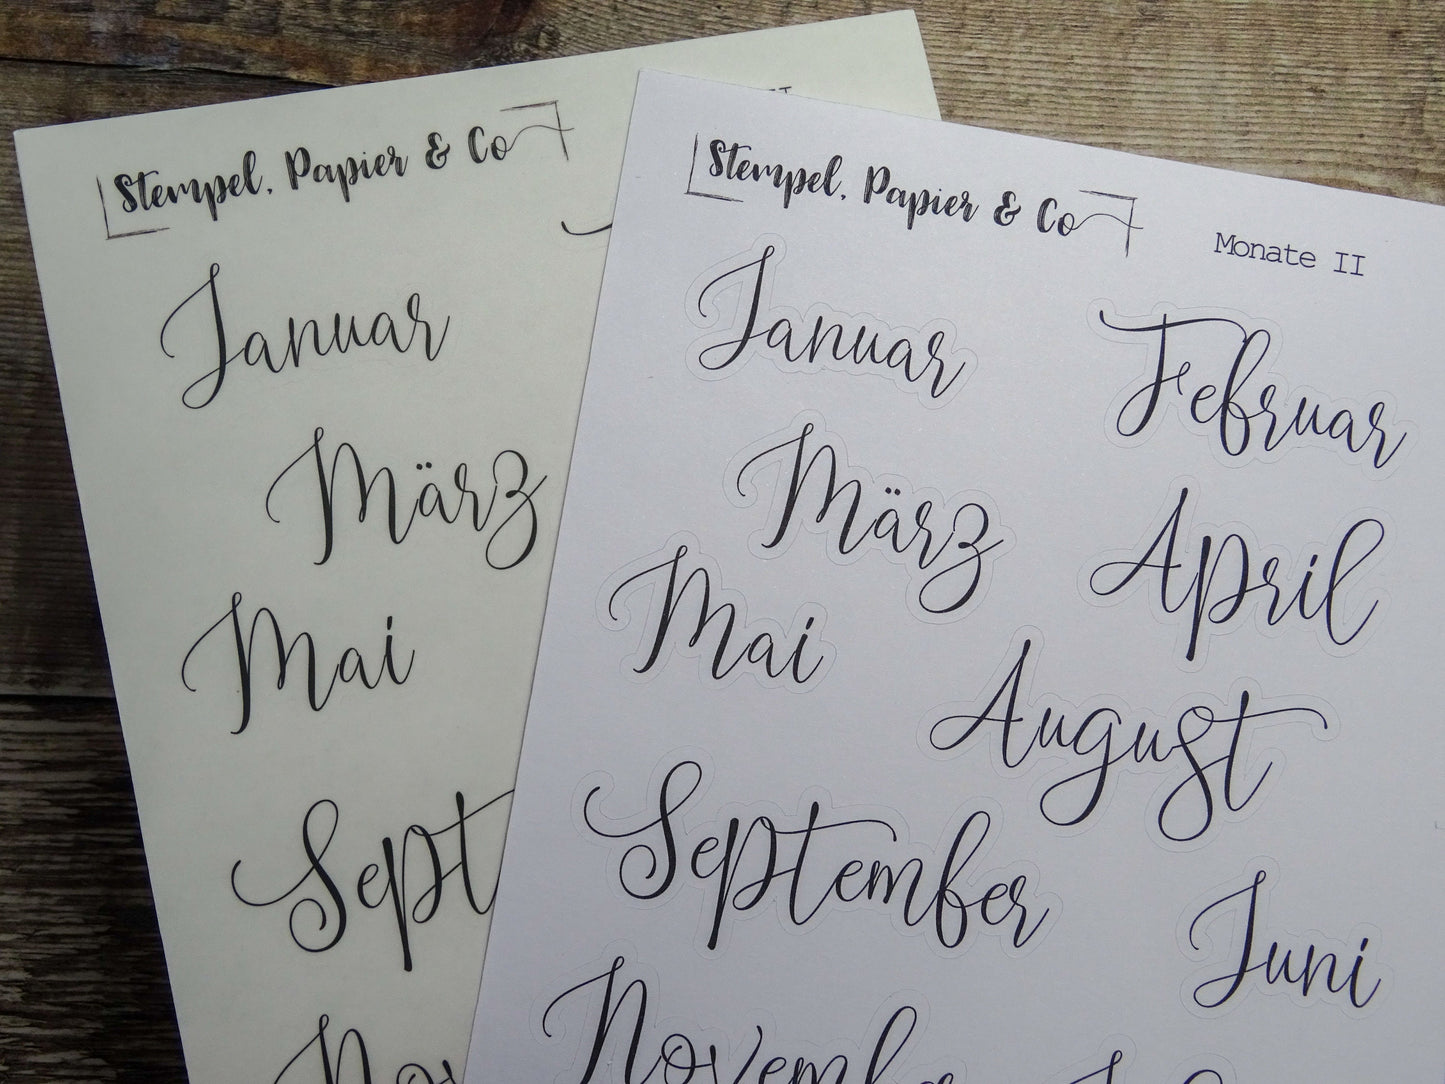 Stempel, Papier & Co
Januar
März
Mai
Sept
Stempel, Papier & Co
Monate II
Januar
Februar
März
April
Mai
August
September
Juni
Novembe